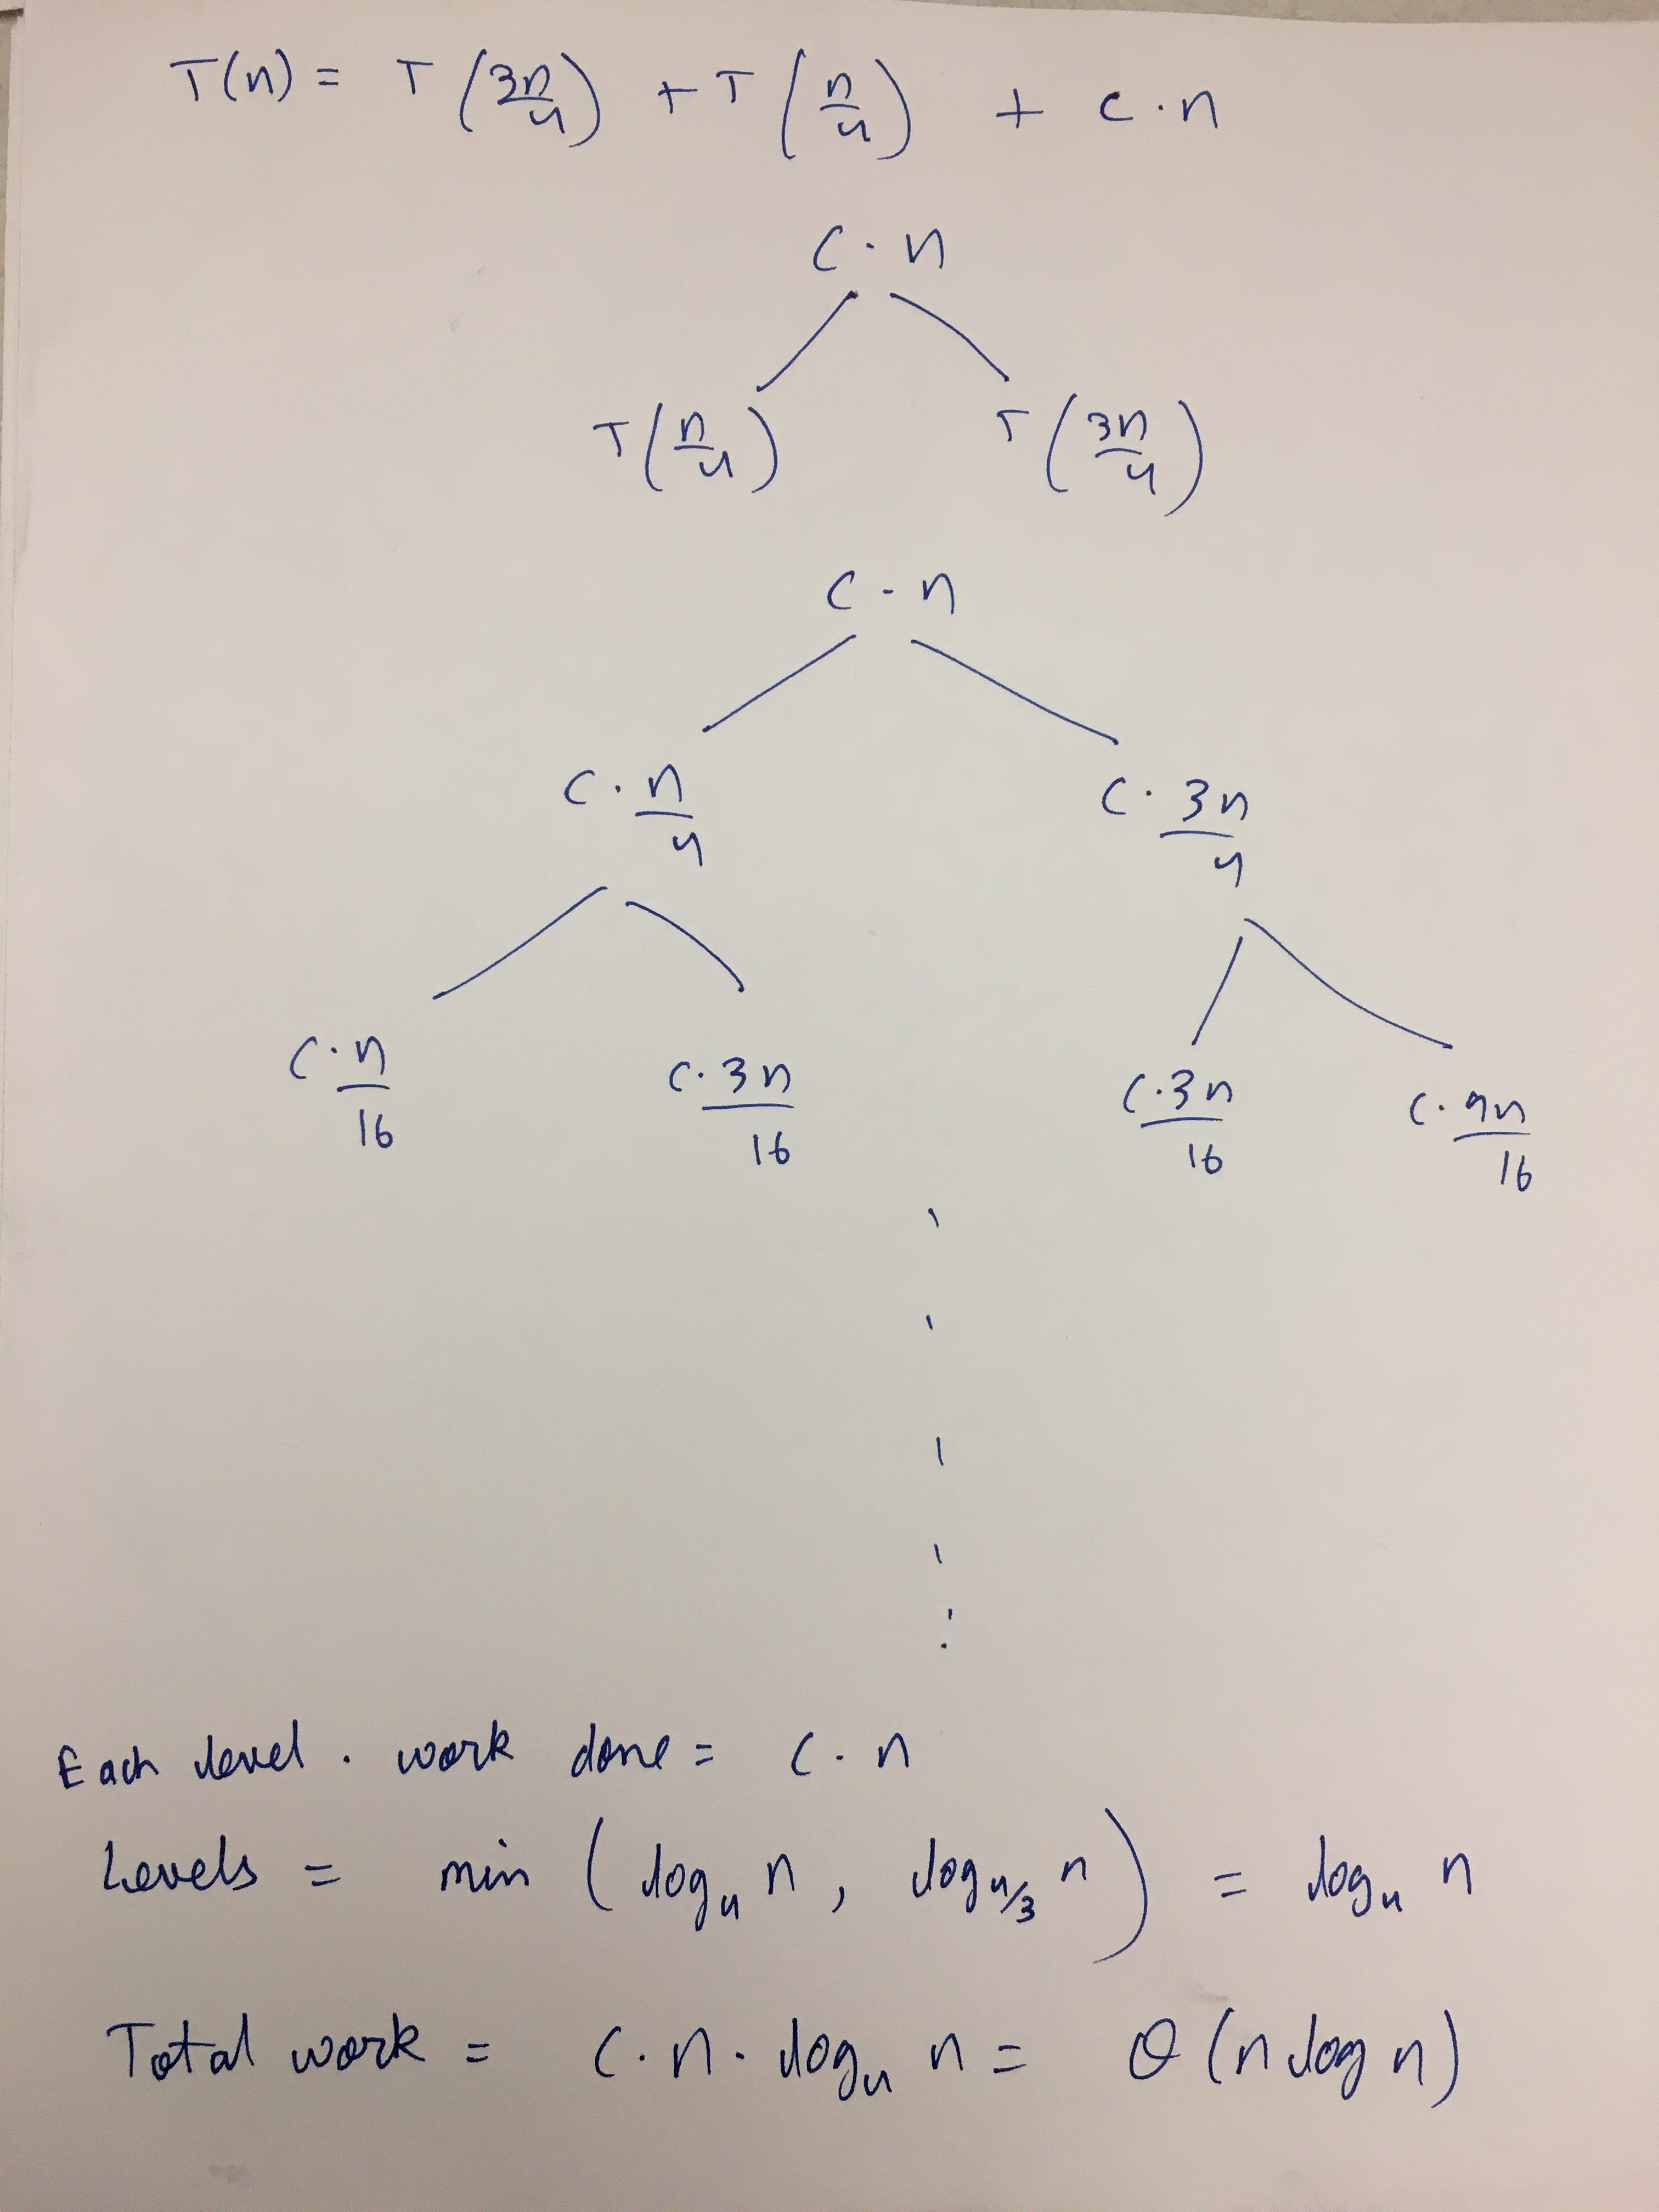 T(n) = T(3n/4) + T(n/4) + c·n
c·n
T(n/4) T(3n/4)
c·n
c·n/4 c·3n/4
c·n/16 c·3n/16 c·3n/16 c·9n/16
Each level. work done = c·n
Levels = min (log₄ n, log₄/₃ n) = log₄ n
Total work = c·n·log₄ n = Θ(n log n)